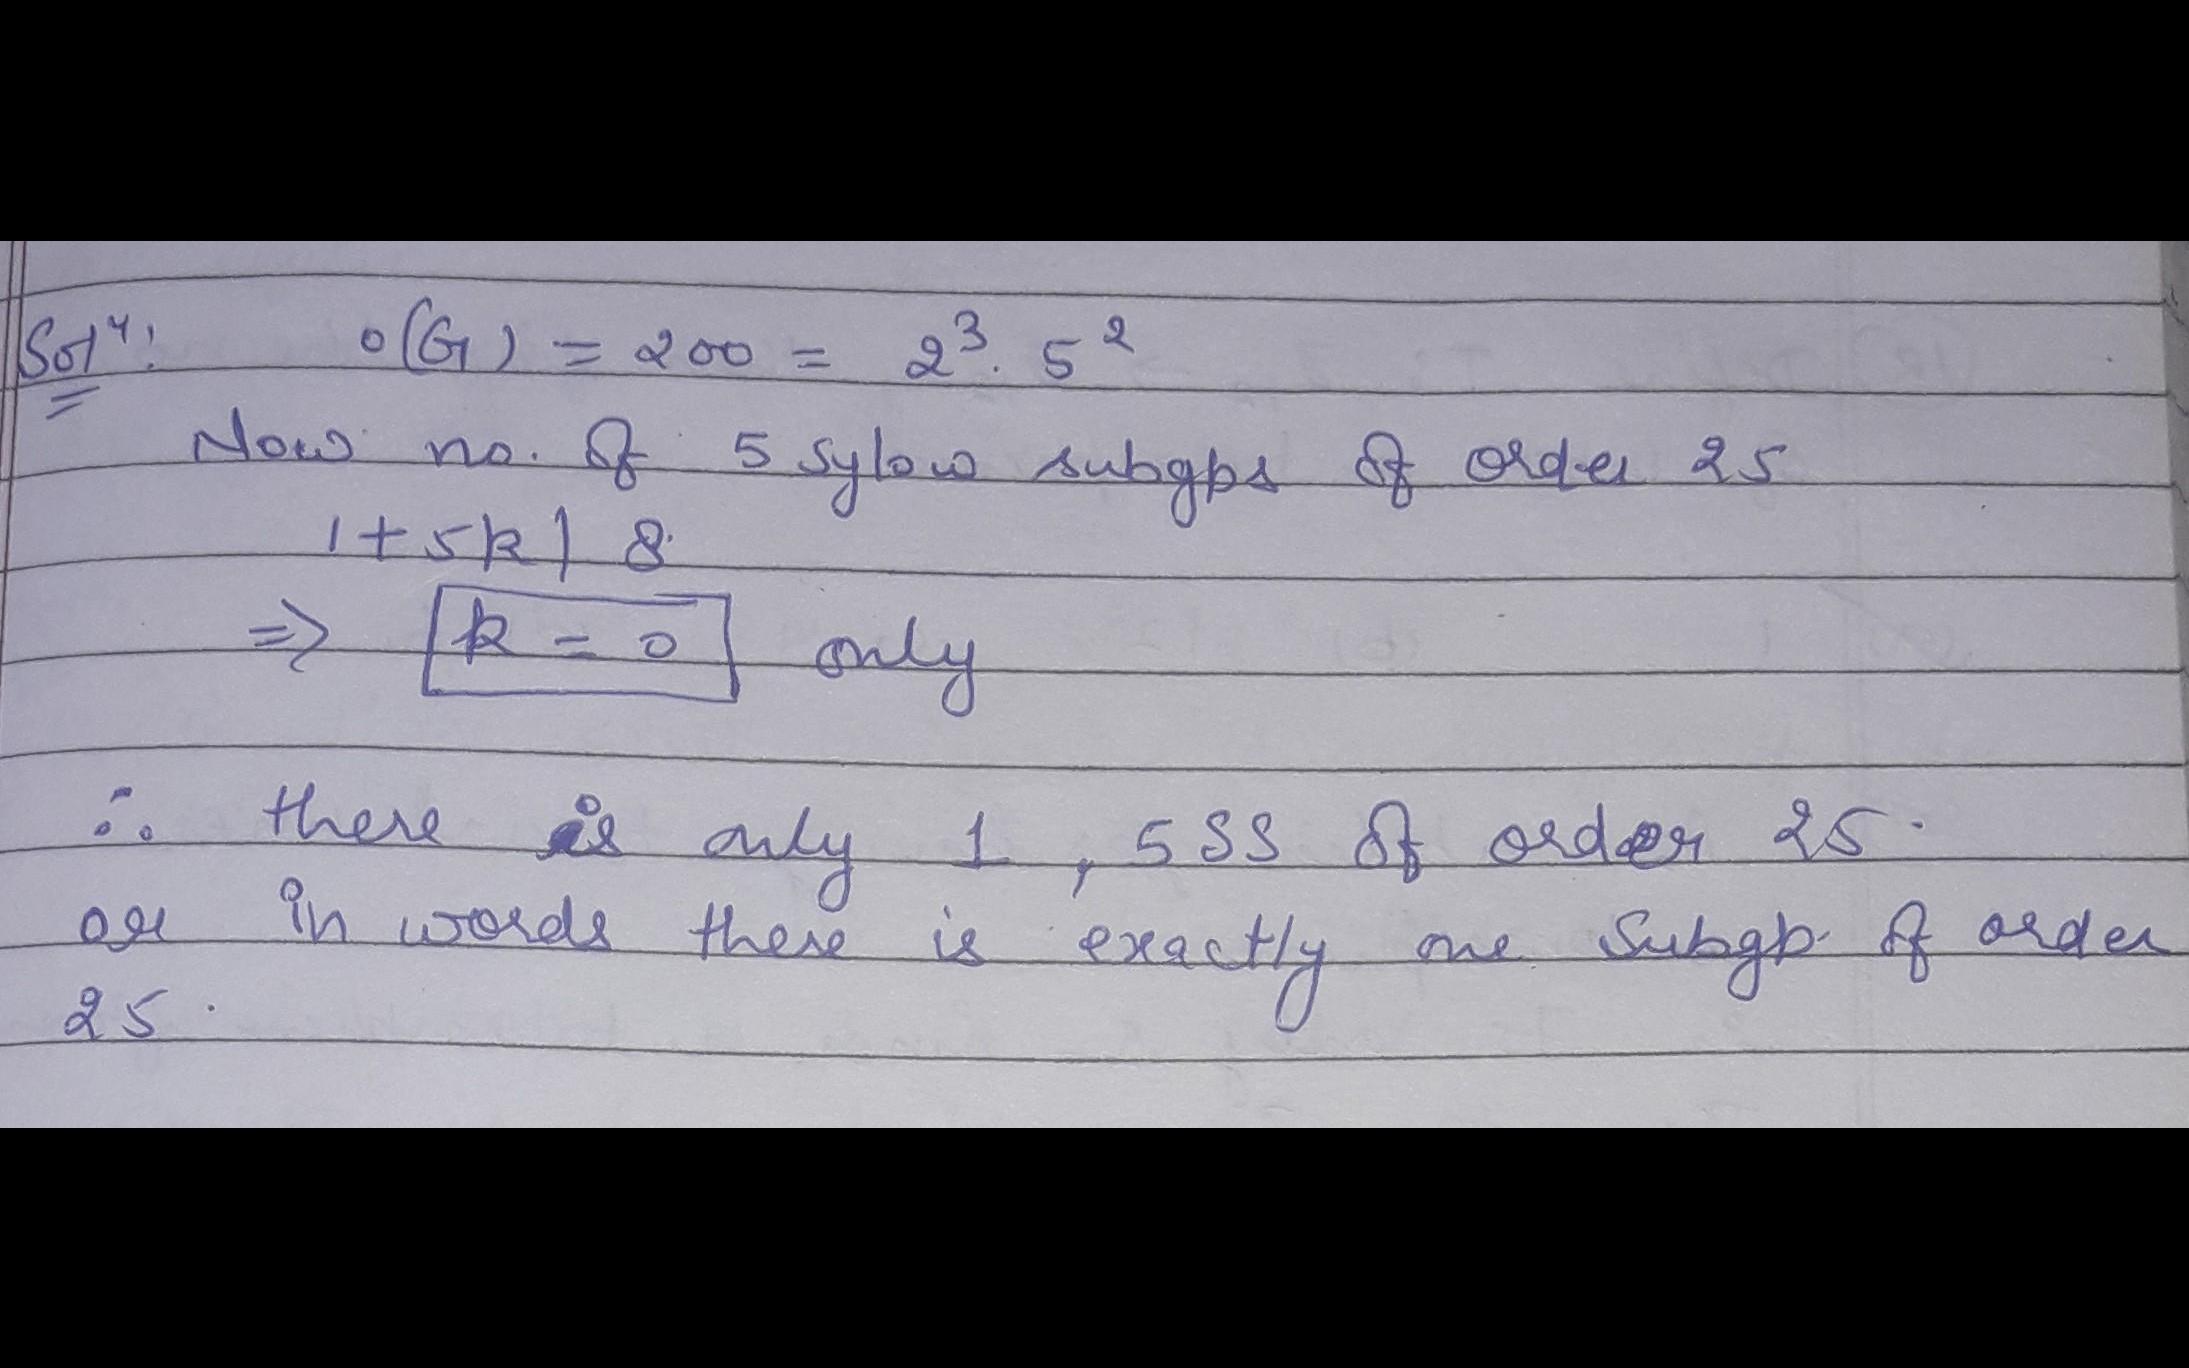 Solⁿ: o(G) = 200 = 2³. 5²
Now no. of 5 sylow subgps of order 25
1+5k | 8
=> k = 0 only
∴ there is only 1, 5 SS of order 25.
or in words there is exactly one Subgp. of order
25.